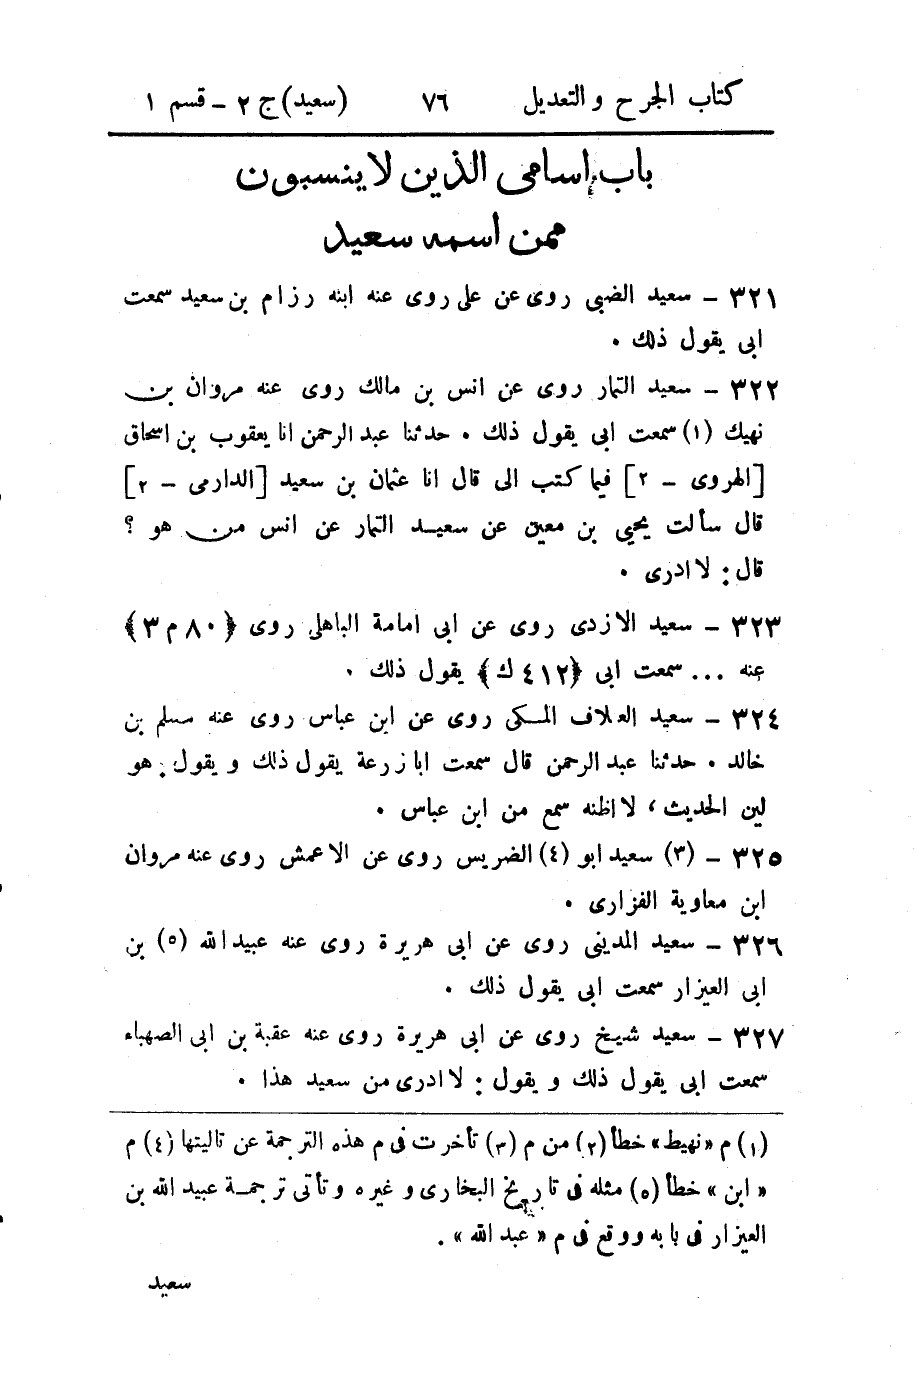 كتاب الجرح والتعديل ٧٦ (سعيد) ج ٢ - قسم ١
باب اسامى الذين لا ينسبون
ممن اسمه سعيد
٣٢١ - سعيد الضبى روى عن على روى عنه ابنه رزام بن سعيد سمعت
ابى يقول ذلك .
٣٢٢ - سعيد التمار روى عن انس بن مالك روى عنه مروان بن
نهيك (١) سمعت ابى يقول ذلك . حدثنا عبد الرحمن انا يعقوب بن اسحاق
[الهروى - ٢] فيما كتب الى قال انا عثمان بن سعيد [الدارمى - ٢]
قال سألت يحيى بن معين عن سعيد التمار عن انس من هو ؟
قال : لا ادرى .
٣٢٣ - سعيد الازدى روى عن ابى امامة الباهلى روى ﴿٨٠ م ٣﴾
عنه ... سمعت ابى ﴿٤١٢ ك﴾ يقول ذلك .
٣٢٤ - سعيد العلاف المكى روى عن ابن عباس روى عنه مسلم بن
خالد . حدثنا عبد الرحمن قال سمعت ابا زرعة يقول ذلك ويقول : هو
لين الحديث ، لا اظنه سمع من ابن عباس .
٣٢٥ - (٣) سعيد ابو (٤) الضريس روى عن الاعمش روى عنه مروان
ابن معاوية الفزارى .
٣٢٦ - سعيد المدينى روى عن ابى هريرة روى عنه عبيد الله (٥) بن
ابى العيزار سمعت ابى يقول ذلك .
٣٢٧ - سعيد شيخ روى عن ابى هريرة روى عنه عقبة بن ابى الصهباء
سمعت ابى يقول ذلك ويقول : لا ادرى من سعيد هذا .
(١) م «نهيط» خطأ (٢) من م (٣) تأخرت فى م هذه الترجمة عن تاليتها (٤) م
«ابن» خطأ (٥) مثله فى تاريخ البخارى وغيره وتأتى ترجمة عبيد الله بن
العيزار فى بابه ووقع فى م «عبد الله» .
سعيد